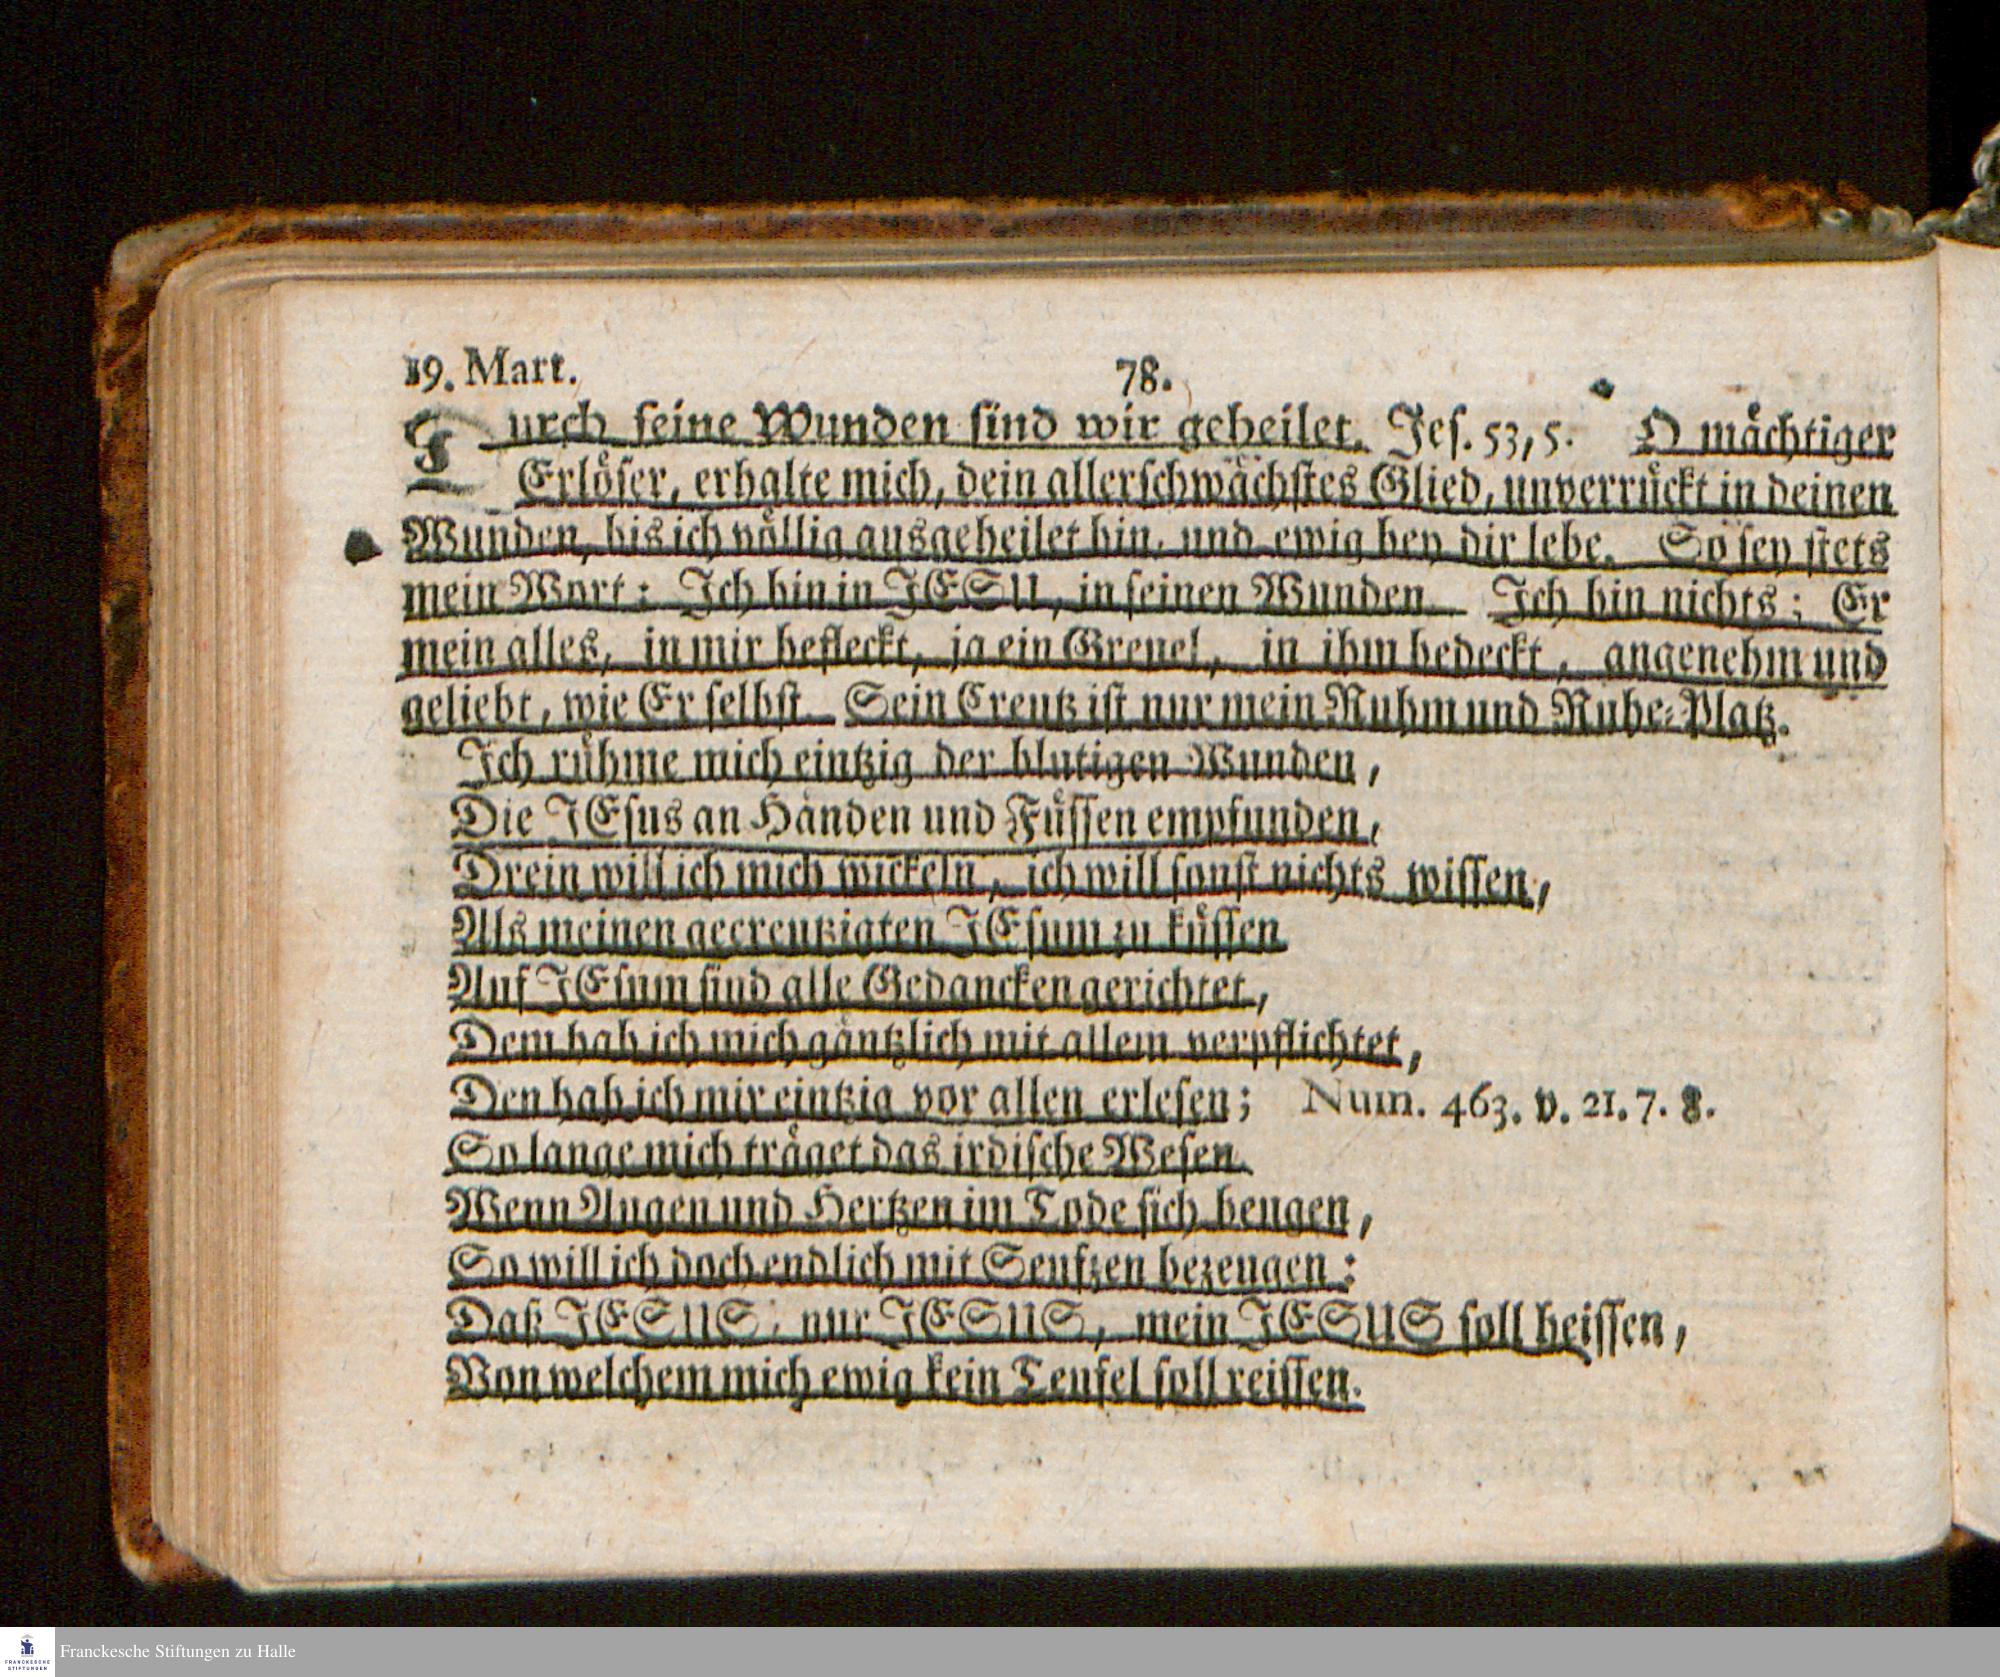 19. Mart. 78.
Durch seine Wunden sind wir geheilet. Jes. 53, 5. O mächtiger
Erlöser, erhalte mich, dein allerschwächstes Glied, unverrückt in deinen
Wunden, bis ich völlig ausgeheilet bin, und ewig bey dir lebe. So sey stets
mein Wort: Ich bin in JESU, in seinen Wunden. Ich bin nichts; Er
mein alles, in mir befleckt, ja ein Greuel, in ihm bedeckt, angenehm und
geliebt, wie Er selbst. Sein Creutz ist nur mein Ruhm und Ruhe-Platz.
Ich rühme mich eintzig der blutigen Wunden,
Die JEsus an Händen und Füssen empfunden,
Drein will ich mich wickeln, ich will sonst nichts wissen,
Als meinen gecreutzigten JEsum zu küssen.
Auf JEsum sind alle Gedancken gerichtet,
Dem hab ich mich gäntzlich mit allem verpflichtet,
Den hab ich mir eintzig vor allen erlesen; Num. 463. v. 21. 7. 8.
So lange mich träget das irdische Wesen.
Wenn Augen und Hertzen im Tode sich beugen,
So will ich doch endlich mit Seufzen bezeugen:
Daß JESUS, nur JESUS, mein JESUS soll heissen,
Von welchem mich ewig kein Teufel soll reissen.
FRANCKESCHE STIFTUNGEN
Franckesche Stiftungen zu Halle